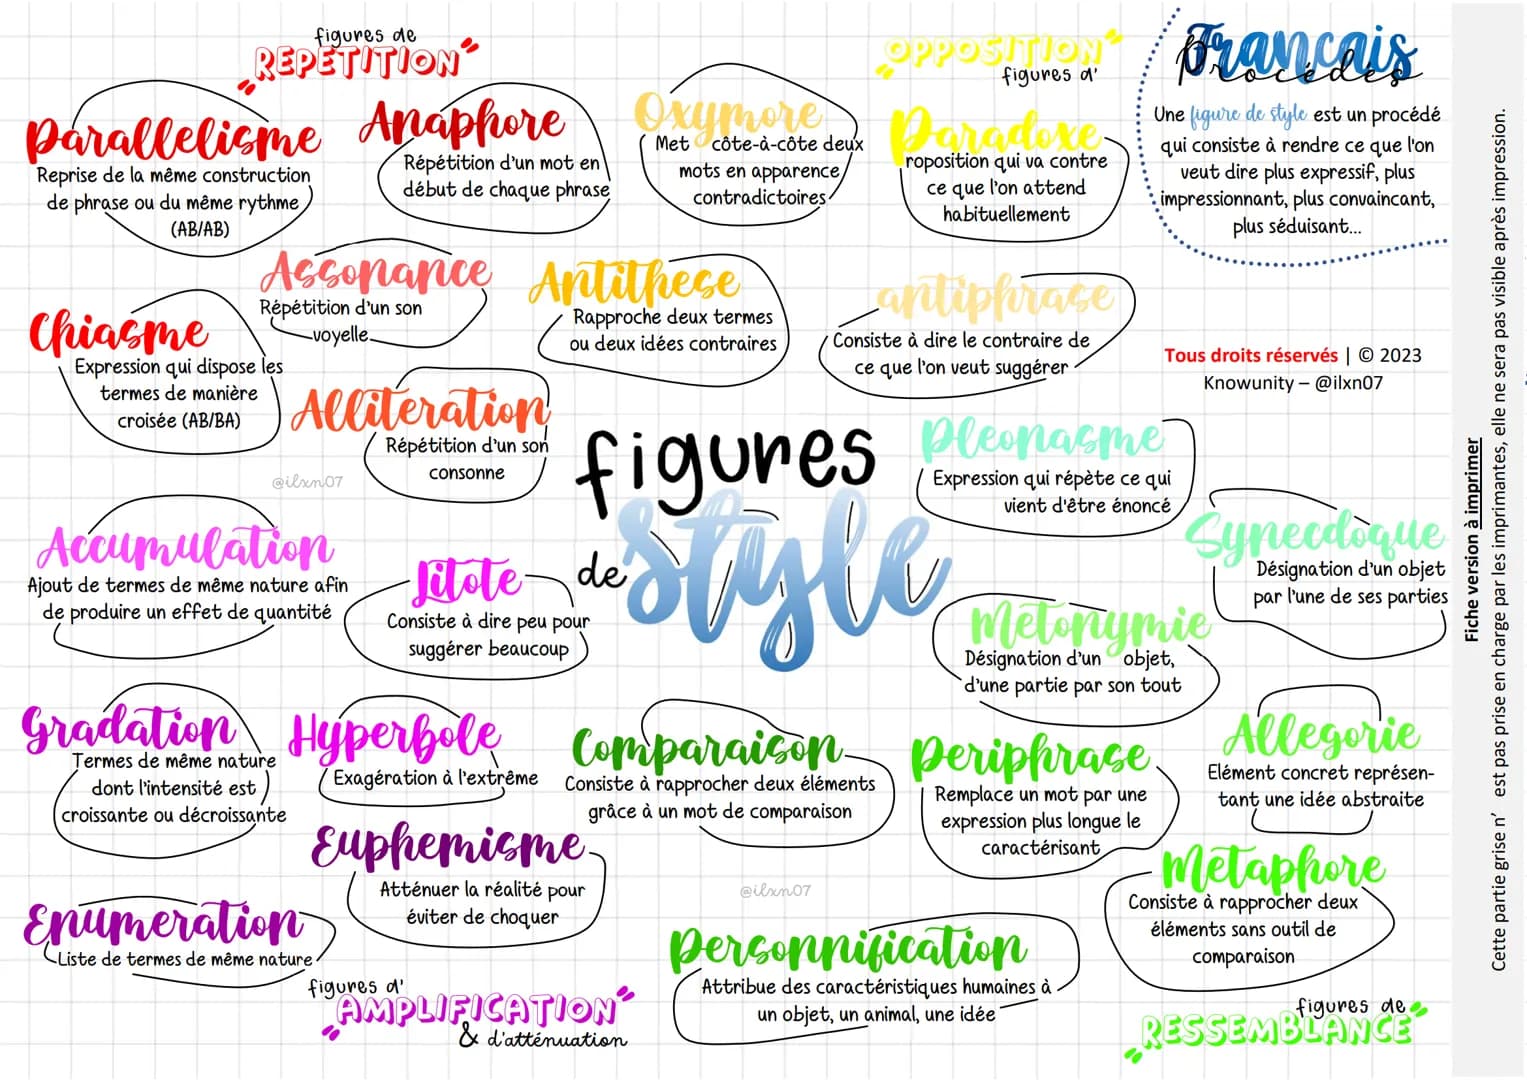 figures de
REPETITION
Parallelisme
Reprise de la même construction
de phrase ou du même rythme
(AB/AB)
Anaphore
Répétition d'un mot en
début de chaque phrase
Assonance
Répétition d'un son
voyelle
Chiasme
Expression qui dispose les
termes de manière
croisée (AB/BA)
Alliteration
Répétition d'un son
consonne
@ilxn07
OPPOSITION
figures d'
Oxymore
Met côte-à-côte deux
mots en apparence
contradictoires
Paradoxe
roposition qui va contre
ce que l'on attend
habituellement
Antithese
Rapproche deux termes
ou deux idées contraires
antiphrase
Consiste à dire le contraire de
ce que l'on veut suggérer
Français
procédés
Une figure de style est un procédé
qui consiste à rendre ce que l'on
veut dire plus expressif, plus
impressionnant, plus convaincant,
plus séduisant...
Tous droits réservés | © 2023
Knowunity – @ilxn07
figures
de style
Accumulation
Ajout de termes de même nature afin
de produire un effet de quantité
Litote
Consiste à dire peu pour
suggérer beaucoup
Gradation
Termes de même nature
dont l'intensité est
croissante ou décroissante
Hyperbole
Exagération à l'extrême
Euphemisme
Atténuer la réalité pour
éviter de choquer
Enumeration
Liste de termes de même nature
figures d'
AMPLIFICATION
& d'atténuation
Pleonasme
Expression qui répète ce qui
vient d'être énoncé
Synecdoque
Désignation d'un objet
par l'une de ses parties
Métonymie
Désignation d'un objet,
d'une partie par son tout
Comparaison
Consiste à rapprocher deux éléments
grâce à un mot de comparaison
Periphrase
Remplace un mot par une
expression plus longue le
caractérisant
Allegorie
Elément concret représen-
tant une idée abstraite
Métaphore
Consiste à rapprocher deux
éléments sans outil de
comparaison
@ilxn07
Personnification
Attribue des caractéristiques humaines à
un objet, un animal, une idée
figures de
RESSEMBLANCE
Fiche version à imprimer
Cette partie grise n' est pas prise en charge par les imprimantes, elle ne sera pas visible après impression.